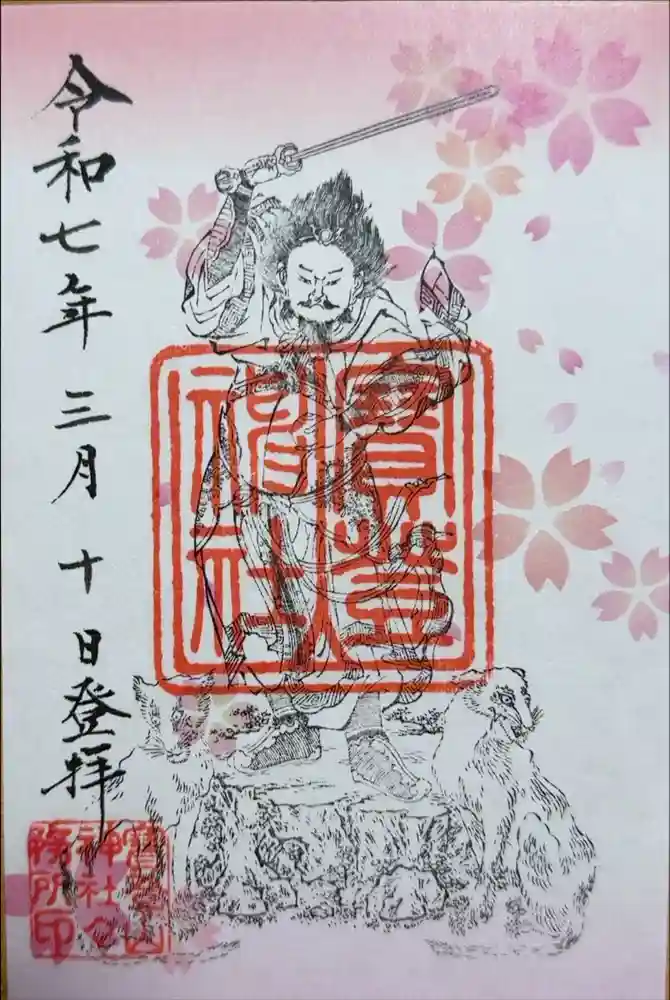 寶登
神社
令和七年三月十日登拝
寶登山
神社々
務所印